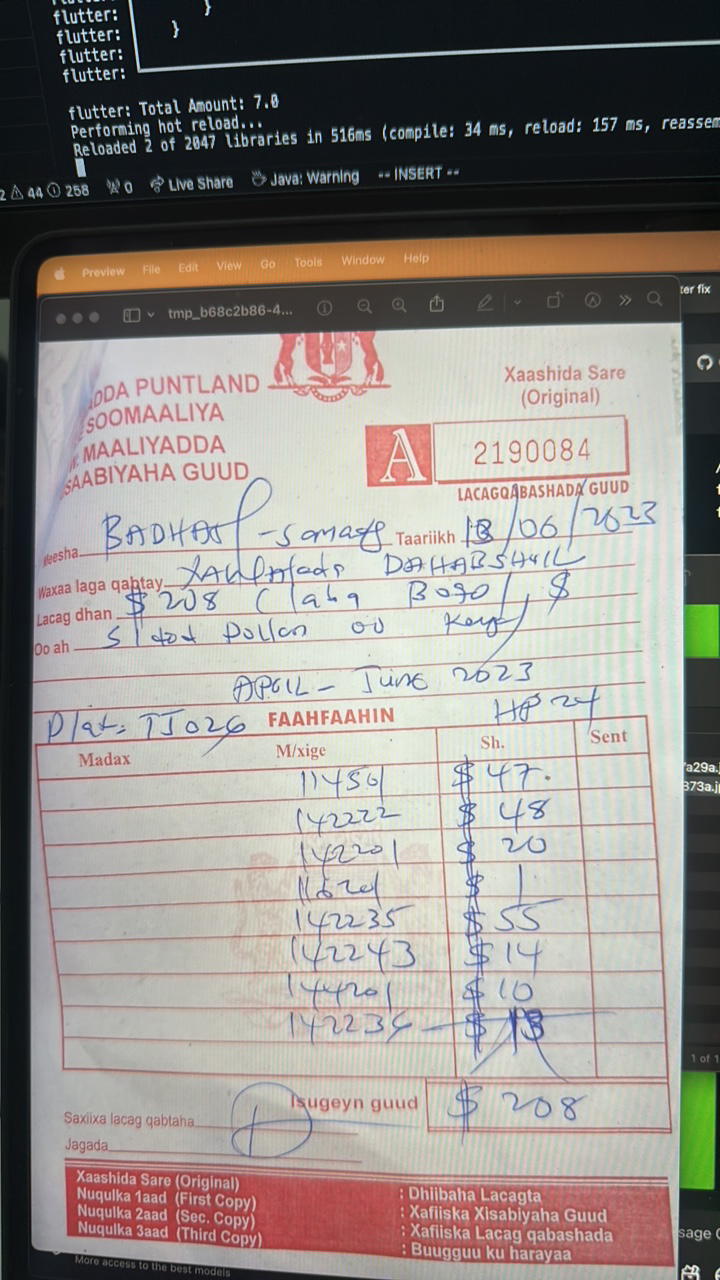 flutter:
flutter:
flutter:
flutter:
}
}
flutter: Total Amount: 7.0
Performing hot reload...
Reloaded 2 of 2047 libraries in 516ms (compile: 34 ms, reload: 157 ms, reassem
2 44 258 0 Live Share Java: Warning -- INSERT --
Preview File Edit View Go Tools Window Help
tmp_b68c2b86-4...
ter fix
ADDA PUNTLAND
SOOMAALIYA
MAALIYADDA
SAABIYAHA GUUD
Xaashida Sare
(Original)
A 2190084
LACAGQABASHADA GUUD
Meesha Taariikh 13/06/2023
Waxaa laga qabtay DAHABSHIIL
Lacag dhan $ 208 $
Oo ah
APRIL - June 2023
Plat: TJ026 FAAHFAAHIN HP 24
Madax M/xige Sh. Sent
$ 47.
142222 $ 48
142201 $ 20
$ 1
142235 $ 55
142243 $ 14
144201 $ 10
$
Isugeyn guud $ 208
Saxiixa lacag qabtaha
Jagada
Xaashida Sare (Original) : Dhiibaha Lacagta
Nuqulka 1aad (First Copy) : Xafiiska Xisabiyaha Guud
Nuqulka 2aad (Sec. Copy) : Xafiiska Lacag qabashada
Nuqulka 3aad (Third Copy) : Buugguu ku harayaa
a29a.j
373a.j
1 of 1
sage
More access to the best models